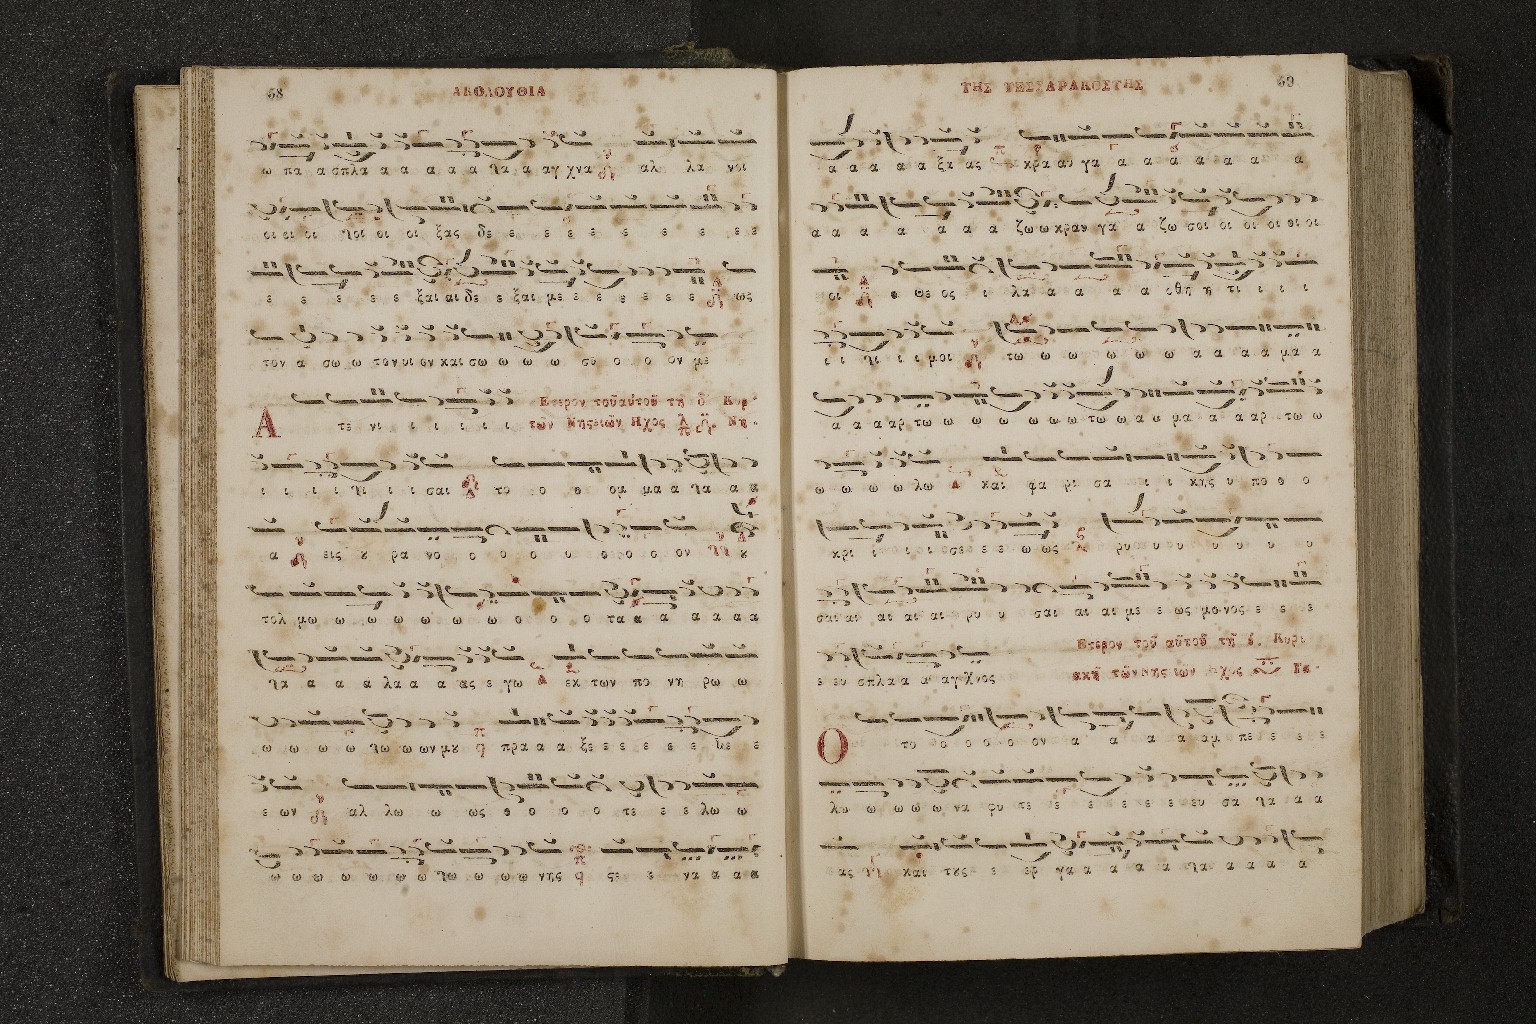 58 ΑΚΟΛΟΥΘΙΑ
ω πα α σπλα α α α α α λα α αγ χνα αλ λα νοι
οι οι οι λοι οι οι ξας δε ε ε ε ε ε ε ε ε ε
ε ε ε ε ε ξαι αι δε ε ξαι με ε ε ε ε ε ε ως
τον α σω ω τον υι ον και σω ω ω ω σο ο ο ον με
Ετερον τοῦ αὐτοῦ τῇ δ. Κυρ
Α τε νι ι ι ι ι ι των Νηςειῶν Ηχος Νη
ι ι ι ι λι ι ι σαι το ο ο ομ μα α λα α α
α εις ου ρα νο ο ο ο ο ο ο ο ον ου
τολ μω ω ω ω ω ω ω ο ο ο τα α α α α α
λα α α α λα α α ας ε γω εκ των πο νη ρω ω
ω ω ω ω λω ω ων μου πρα α α ξε ε ε ε ε λε ε
ε ων αλ λω ω ως ο ο ο ο τε ε ε λω ω
ω ω ω ω ω ω λω ω ω ω νης ςε ε να α α α
ΤΗΣ ΤΕΣΣΑΡΑΚΟΣΤΗΣ 59
α α α α α ξα ας κρα αυ γα α α α α α α α
α α α α α α α ζω ω κραυ γα α ζω σοι οι οι οι οι οι
οι ο Θε ος ι λα α α α α σθη η τι ι ι ι
ι ι λι ι ι μοι τω ω ω ω ω ω α α α α μα α
α α α αρ τω ω ω ω ω ω ω τω ω α α μα α α αρ τω ω
ω ω ω ω λω και φα ρι σα ι ι κης υ πο ο ο
κρι ι ι ι ι σε ε ε ω ως ρυ υ υ υ υ υ υ
σαι αι αι αι αι ρυ υ σαι αι αι με ε ως μο νος ε ε ε
Ετερον τοῦ αὐτοῦ τῇ έ. Κυρι
ε ευ σπλα α α αγ χνος ακῇ τῶν νης ιῶν Ηχος Γα
Ο το ο ο ο ο ον α α α α αμ πε ε ε ε
λω ω ω ω ω να φυ τε ε ε ε ε ε ε ευ σα λα α α
ας και τους ε ερ γα α α α α λα α α α α